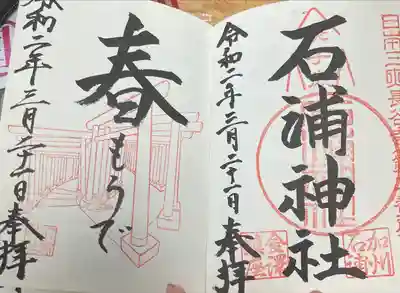 石浦神社
令和二年三月二十一日
奉拝
加州
石浦
金澤
春もうで
令和二年三月二十一日
奉拝